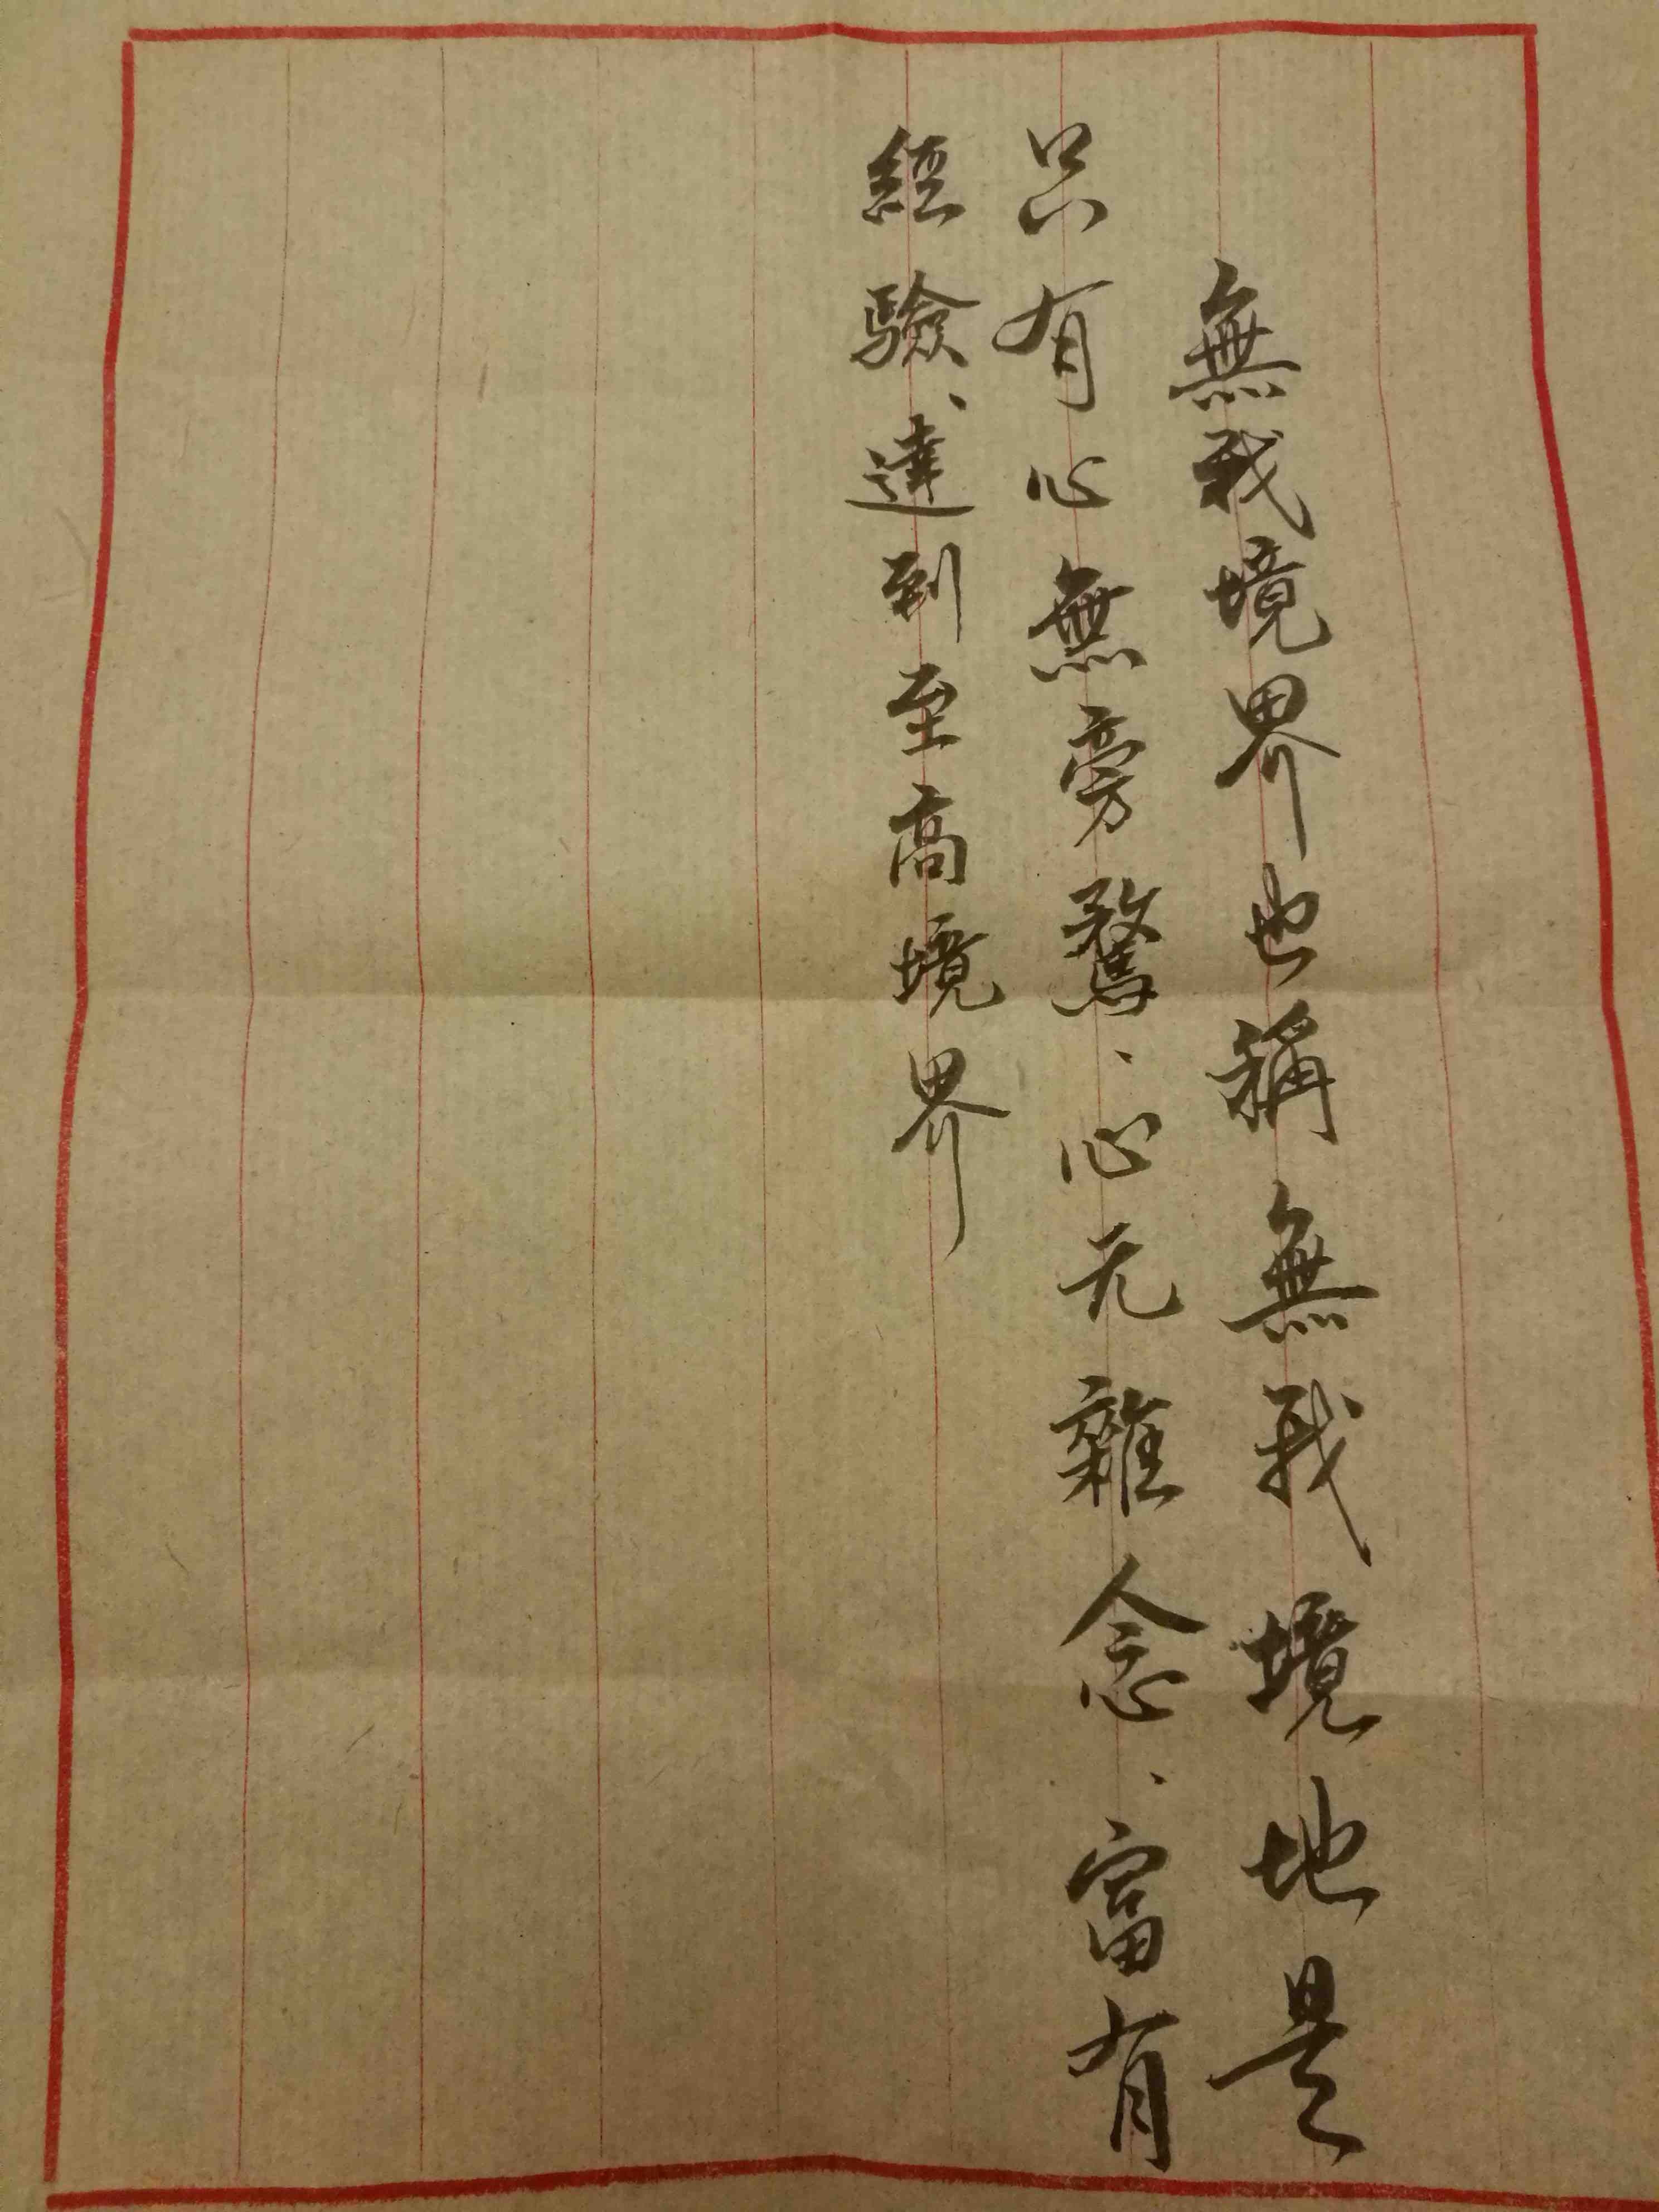 無我境界也稱無我境地是
只有心無旁騖、心无雜念、富有
經驗、達到至高境界